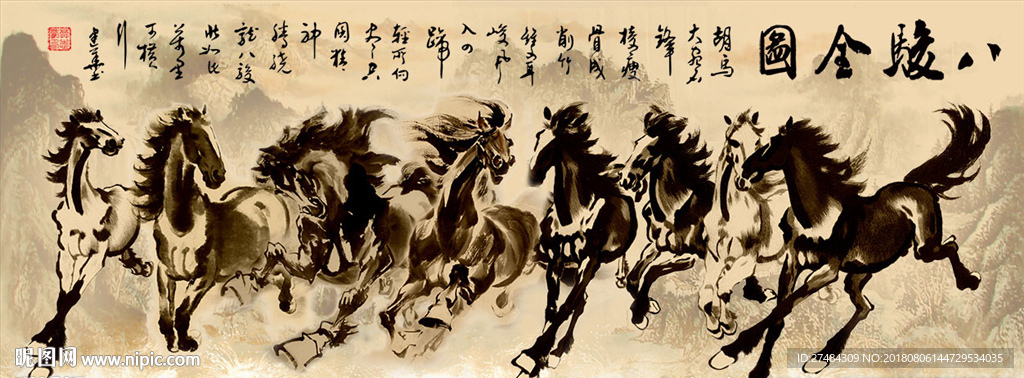 八駿全圖
胡馬
大宛名
鋒
棱瘦
骨成
削竹
峻風
入四
蹄
輕所向
神
騰驍
龍八駿
萬里
可橫
行
昵图网 www.nipic.com
ID:27484309 NO:20180806144729534035